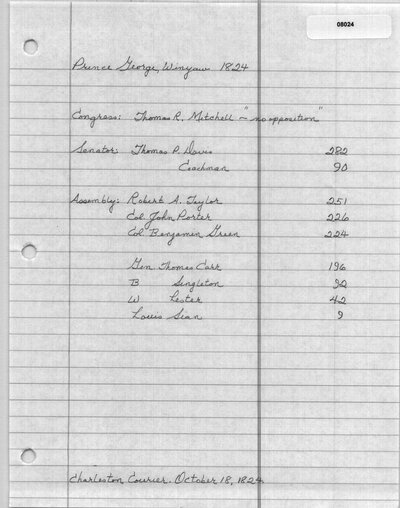 08024
Prince George, Winyaw 1824
Congress: Thomas R. Mitchell - "no opposition"
Senator: Thomas P. Davis 282
Coachman 90
Assembly: Robert A. Taylor 251
Col. John Porter 226
Col. Benjamin Green 224
Gen. Thomas Carr 196
B Singleton 92
W Lester 42
Louis 9
Charleston Courier. October 18, 1824